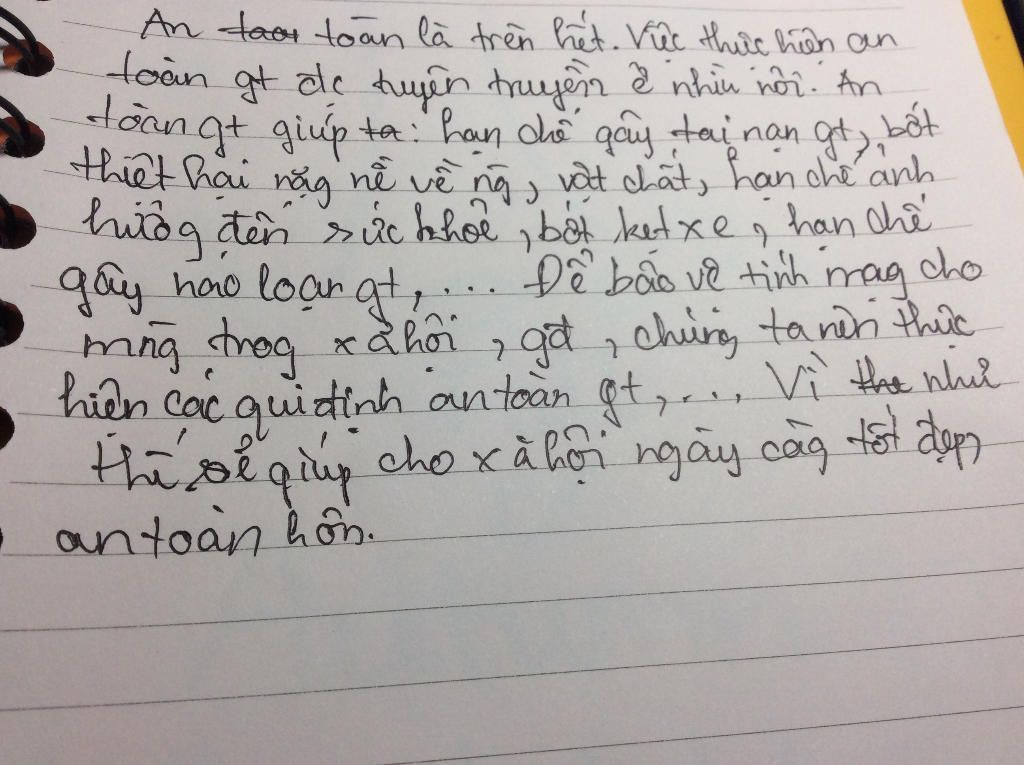 An toàn là trên hết. Việc thực hiện an
toàn gt đc tuyên truyền ở nhìu nơi. An
toàn gt giúp ta: hạn chế gây tai nạn gt, bớt
thiệt hại nặng nề về ng, vật chất, hạn chế ảnh
hưởg đến sức khoẻ, bớt kẹt xe, hạn chế
gây náo loạn gt,... Để bảo vệ tính mạg cho
mng trog xã hội, gđ, chúng ta nên thực
hiện các qui định an toàn gt,... Vì như
thế sẽ giúp cho xã hội ngày càg tốt đẹp,
an toàn hơn.